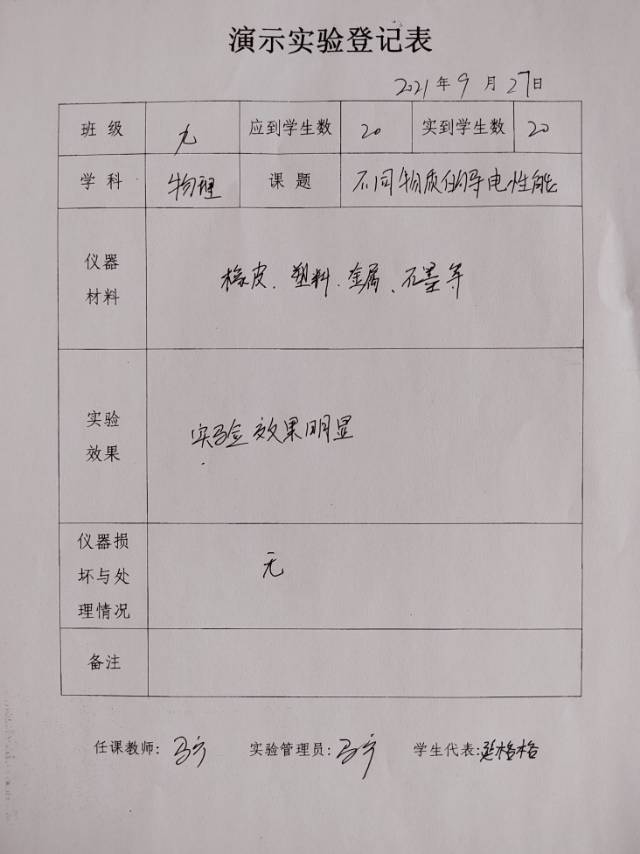 演示实验登记表
2021年9月27日
班级 九 应到学生数 20 实到学生数 20
学科 物理 课题 不同物质的导电性能
仪器
材料
橡皮、塑料、金属、石墨等
实验
效果
实验效果明显
仪器损
坏与处
理情况
无
备注
任课教师: 实验管理员: 学生代表: 格格